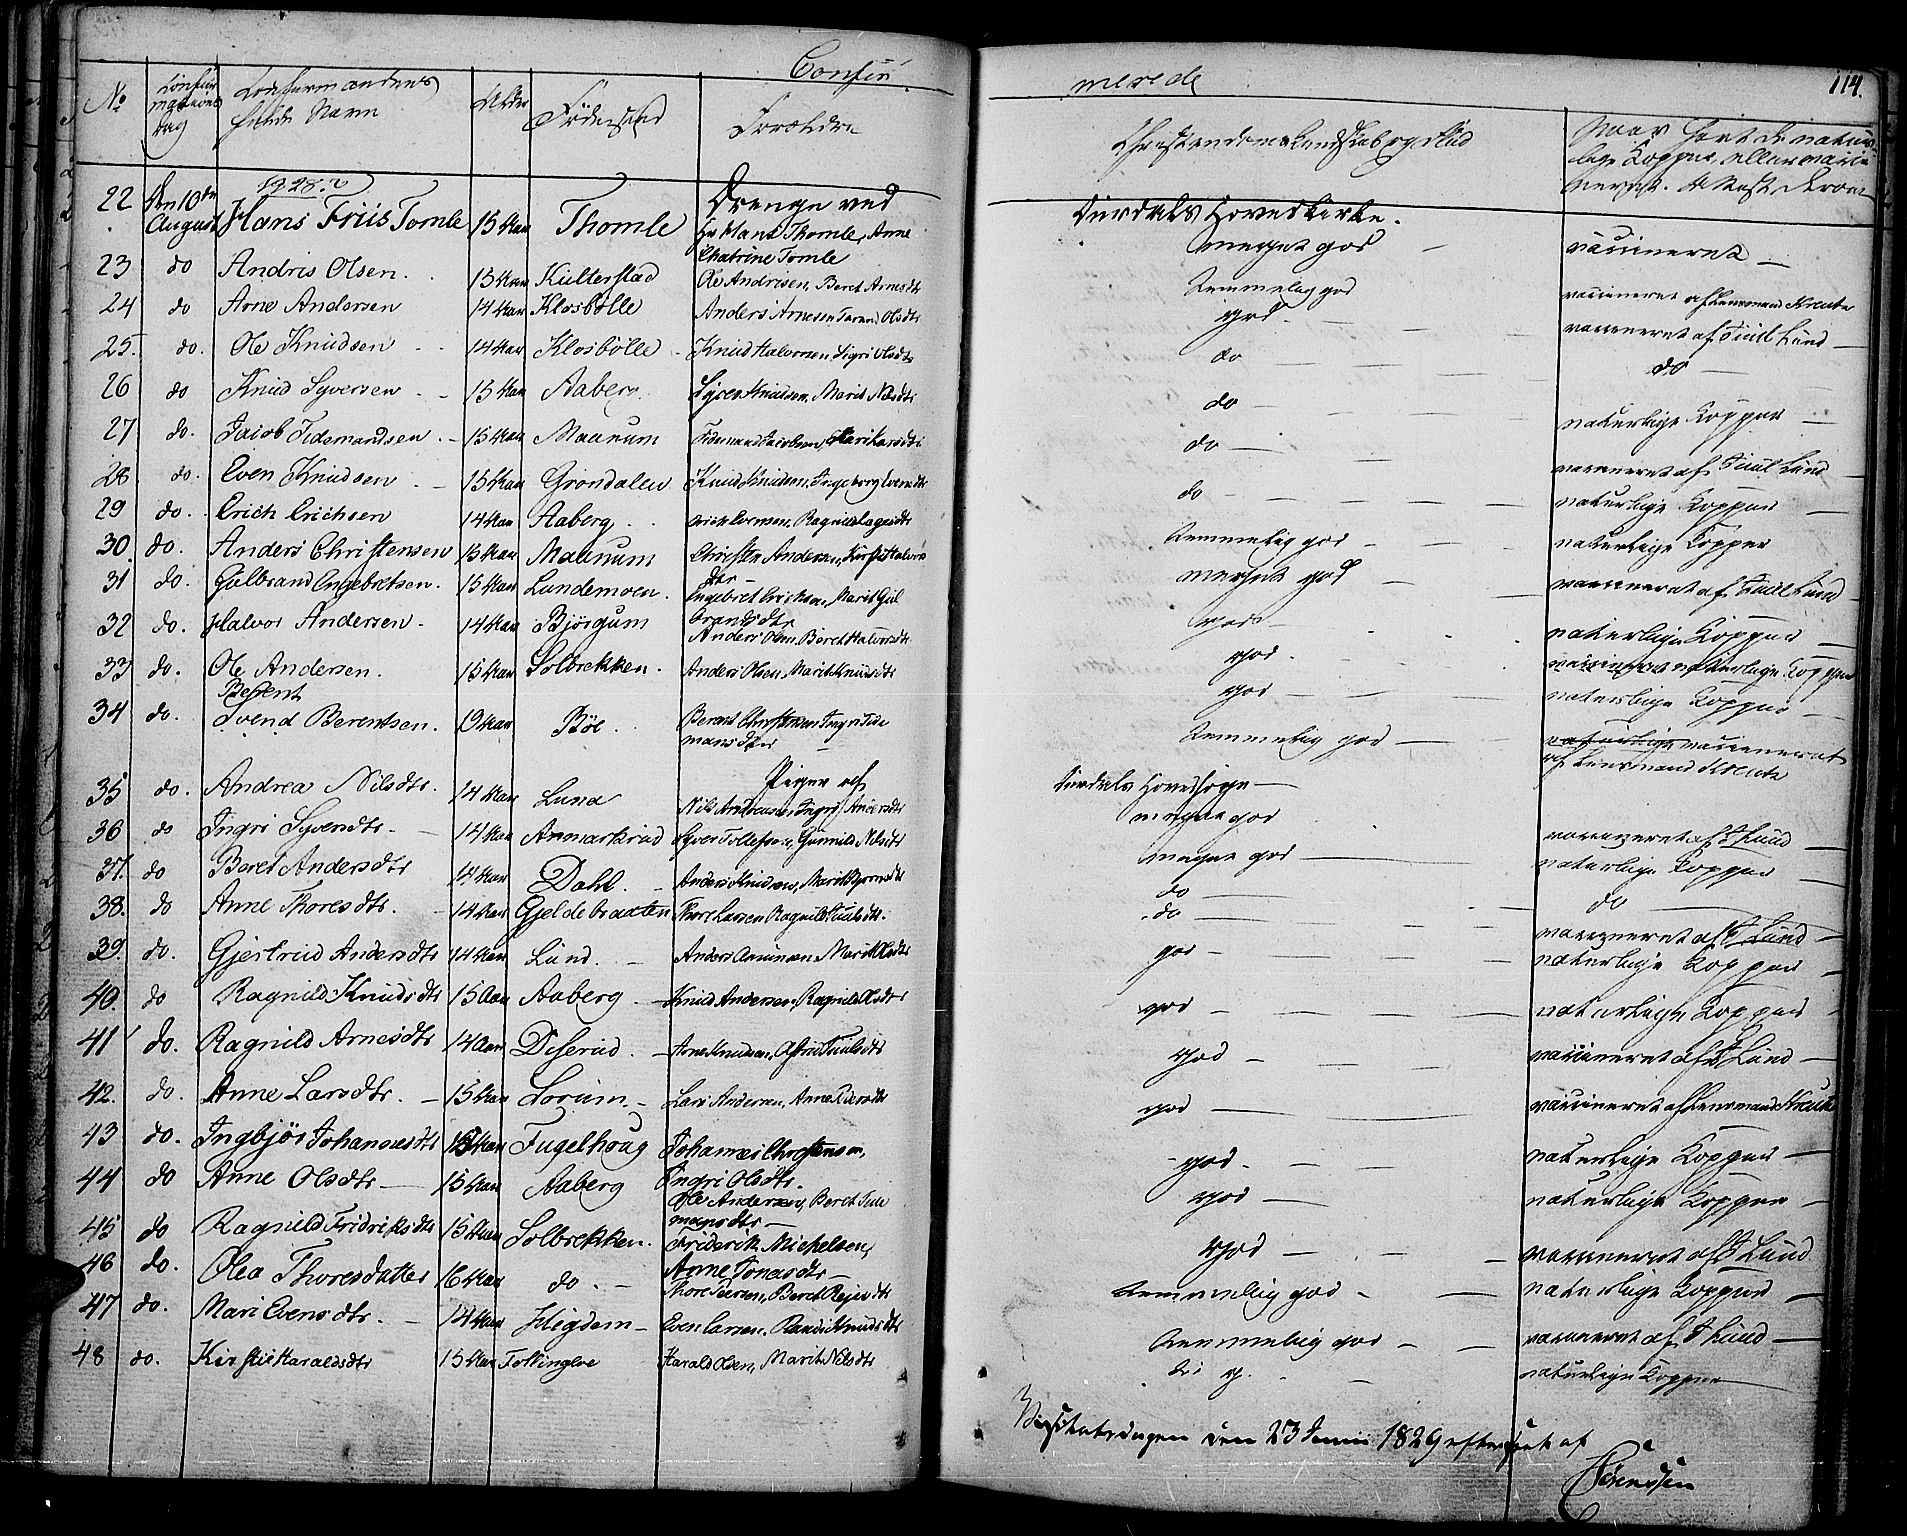 Confir
merede
114.
No
Confir
mations
Dag
Confirmandens
fulde Navn
Alder
Födested
Forældre
Christendoms Kundskab og flid
Naar havt de natur-
lige Kopper eller vacci-
neret. Attest derom
1828
Drenge ved
Vurdals Hovedkirke.
22 den 10de August Hans Friis Tomle 15 Aar Thomle Hr Hans Thomle, Anne
Chatrine Tomle
meget god — vaccineret —
23 do Andris Olsen. 15 Aar Kulterstad Ole Andrisen, Beret Arnesdtr Temmelig god vaccineret af Lensmand Kreutz
24 do Arne Andersen 14 Aar Klosbölle Anders Arnesen Taran Olsdtr god. vaccineret af Tiuul Lund —
25. do. Ole Knudsen 14 Aar Klosbölle Knud Halvorsen, Sigri Olsdtr do do —
26 do Knud Syversen 15 Aar Aaberg. Syver Knudsen, Marit Nilsdtr do — naturlige Kopper —
27 do. Jacob Tidemandsen. 15 Aar Maanum Tidemand Jacobsen, Mari Larsdtr do — vaccineret af Tiuul Lund
28 do. Even Knudsen 15 Aar Grondalen Knud Knudsen, Ingeborg Evensdtr do naturlige Kopper —
29 do. Erich Erichsen 14 Aar Aaberg. Erich Evensen, Ragnild Lagesdtr Temmelig god naturlige Kopper
30 do. Anders Christensen 15 Aar Maanum Christen Andersen, Kirsti Halvors
dtr
meget god — vaccineret af Tiuul Lund
31 do. Gulbrand Engebretsen. 15 Aar Lundemoen. Engebret Erichsen, Marit Gul
brandsdtr
god naturlige Kopper —
32 do. Halvor Andersen. 14 Aar Bjorgum Anders Olsen, Beret Halvorsdtr god. naturlige Kopper
33 do. Ole Andersen. 15 Aar Solbrekken. Anders Olsen, Marit Knudsdtr god naturlige Kopper
34 do. Berent
Svend Berentsen. 19 Aar Böe. Berent Christensen Ingri Tide
mansdtr
Temmelig god — naturlige vaccineret
af Lensmand Kreutz
Piger af
Vurdals Hovedsogn —
35 do. Andrea Nilsdtr. 14 Aar Lund Nils Andersen, Ingri Andersdtr meget god vaccineret af T Lund —
36 do Ingri Syversdtr. 14 Aar Anmarkrud Syver Tollefsen, Gunnild Nilsdtr meget god naturlige Kopper
37. do Beret Andersdtr 14 Aar Dahl. Anders Knudsen, Marit Bjornsdtr do do
38. do Anne Thoresdtr. 14 Aar Gjeldebraaten Thore Larsen Ragnild Juulsdtr. do vaccineret af T Lund —
39. do. Gjertrud Andersdtr 14 Aar Lund. Anders Amundsen, Marit Olsdtr god naturlige Kopper
40. do Ragnild Knudsdtr 15 Aar Aaberg. Knud Andersen, Ragnild Olsdtr god naturlige Kopper
41 do. Ragnild Arnesdtr 14 Aar Diserud. Arne Knudsen, Astrid Juulsdtr god vaccineret af T Lund —
42. do. Anne Larsdtr. 15 Aar Lorum. Lars Andersen, Anne Iversdtr god vaccineret af Lensmand Kreutz
43 do. Ingbjör Johannesdtr 15 Aar Fugelhoug Johannes Christensen,
Ingri Olsdtr.
god. naturlige Kopper —
44 do Anne Olsdtr 15 Aar Aaberg Ole Andersen, Beret Tide
mansdtr —
god naturlige Kopper
45 do Ragnild Fridriksdtr 15 Aar Solbrekken. Friderik Michelsen,
Anne Jonasdtr
god vaccineret af T Lund
46 do. Olea Thoresdatter 16 Aar do. Thore Iversen, Beret Rejersdtr Temmelig god naturlige Kopper
47 do. Mari Evensdtr. 14 Aar Högdem Even Larsen, Randi Knudsdtr Temmelig god vaccineret af T Lund —
48 do. Kirsti Haraldsdtr 15 Aar Follinglve Harald Olsen, Marit Nilsdtr T: g. naturlige Kopper
Visitatsdagen den 23 Junii 1829 efterseet af
Sörenssen